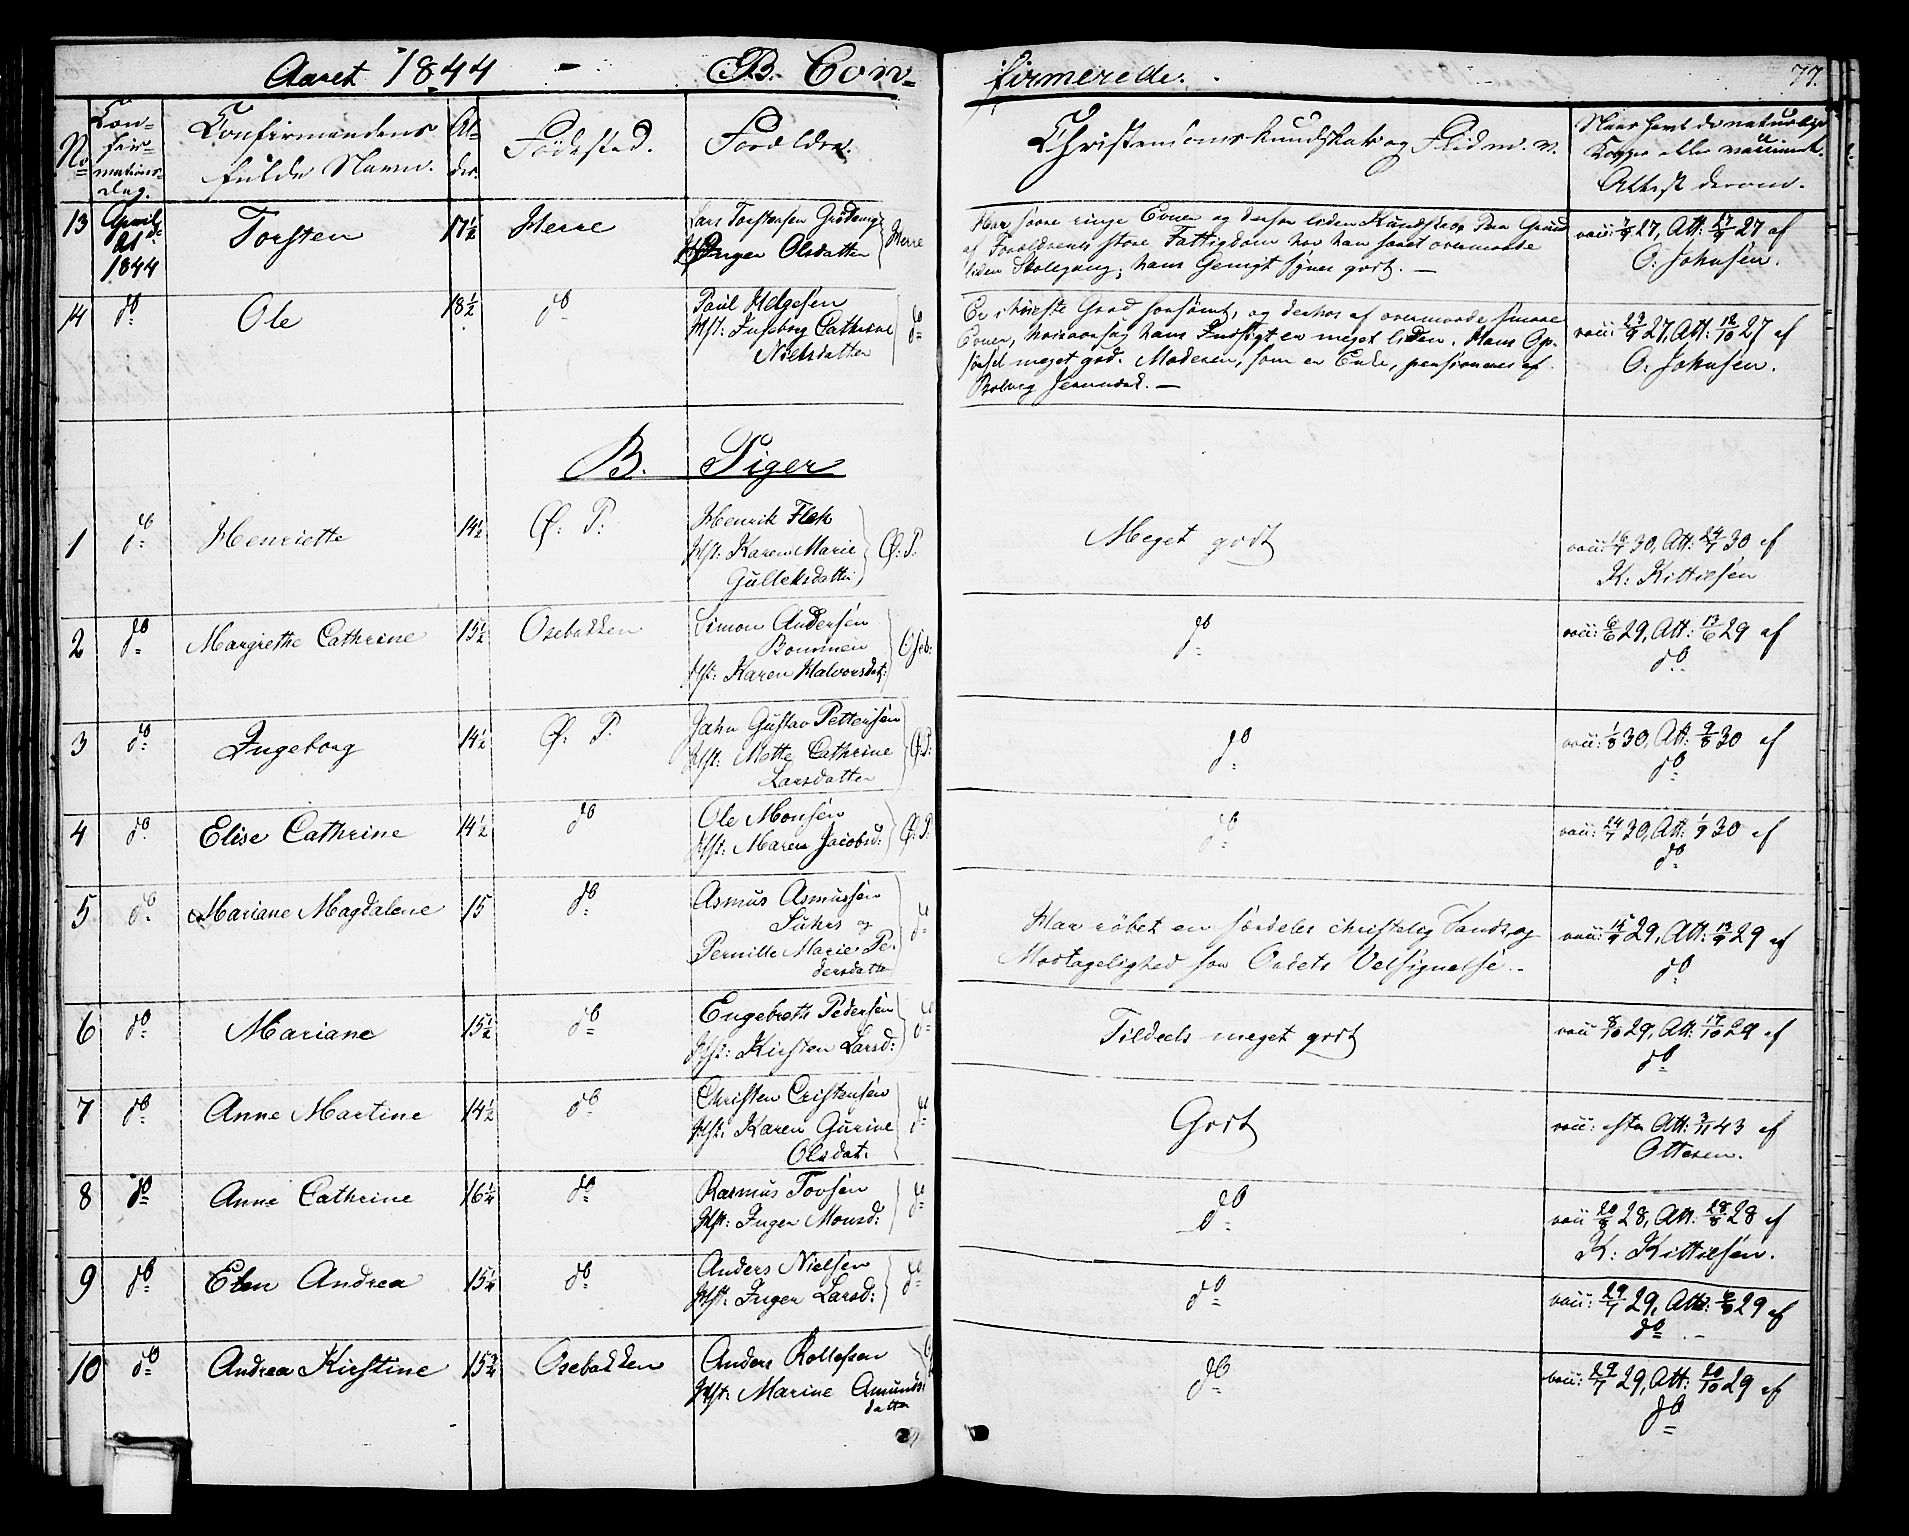 Aaret 1844 - B. Con-
firmerede. 77.
No
Con-
fir-
mations-
dag.
Confirmandens
fulde Navn.
Al-
der.
Fødested.
Forældre.
Christendomskundskab og Flid m. v.
Naar havt de naturlige
Kopper eller vaccineret.
Attest derom.
13 April 21de 1844 Torsten 17½ Herre
Lars Torstensen Grøtang
Hst: Inger Olsdatter } Herre
Har svare ringe Evner og derfor liden Kundskab. Paa Grund
af Forældrenes store Fattigdom har han havt overmaade
liden Skolegang; hans Gemyt synes godt. —
vacc: 27, Att: 27 af
O: Johnsen.
14 do Ole 18½ do
Paul Helgesen
Hst: Ingeborg Cathrine
Nielsdatter } do
Er i høieste Grad forsømt, og derhos af overmaade smaae
Evner, hvisaarsag hans Indsigt er meget liden. Hans Op-
førsel meget god. Moderen, som er Enke, pensioneres af
Bolvig Jernværk. —
vacc: 23/9 27, Att: 12/10 27 af
O: Johnsen.
B. Piger
1 do Henriette 14½ Ø: P:
Henrik Flek
Hst: Karen Marie
Gulleksdatter } Ø: P:
Meget godt
vacc: 16/7 30, Att: 24/7 30 af
K: Kittilsen
2 do Margrethe Cathrine 15½ Osebakken
Simon Andersen
Bommen
Hst: Karen Halvorsdat: } Oseb:
do
vacc: 6/6 29, Att: 13/6 29 af
do
3 do Ingeborg 14½ Ø: P.
Jahn Gustav Pettersen
Hst: Mette Cathrine
Larsdatter } Ø: P:
do
vacc: 1/8 30, Att: 9/8 30 af
do
4 do Elise Cathrine 14½ do
Ole Monsen
Hst: Maren Jacobsd: } Ø: P.
do
vacc: 24/7 30, Att: 1/9 30 af
do
5 do Mariane Magdalene 15 do
Asmus Asmussen
Suhrs og
Pernille Marie Pe-
dersdatter } do
Har røbet en særdeles christelig Sands og
Modtagelighed for Ordets Velsignelse. -
vacc: 29, Att: 13/9 29 af
do
6 do Mariane 15½ do
Engebreth Pedersen
Hst: Kirsten Larsd: } do
Tildeels meget godt
vacc: 8/10 29, Att: 17/10 29 af
do
7 do Anne Martine 14½ do
Christen Cristensen
Hst: Karen Gurine
Olsdat: } do
Godt
vacc: efter Att: 3/11 43 af
Ottesen.
8 do Anne Cathrine 16¼ do
Rasmus Tovsen
Hst: Inger Monsd: } do
do
vacc 20/8 28, Att: 28/8 28 af
K: Kittilsen.
9 do Elen Andrea 15¼ do
Anders Nielsen
Hst: Inger Larsd: } do
do
vacc: 29/7 29, Att: 29 af
do -
10 do Andrea Kirstine 15¾ Osebakken
Anders Rollefsen
Hst: Marine Amunds-
datter
do
vacc: 29/7 29, Att: 20/10 29 af
do